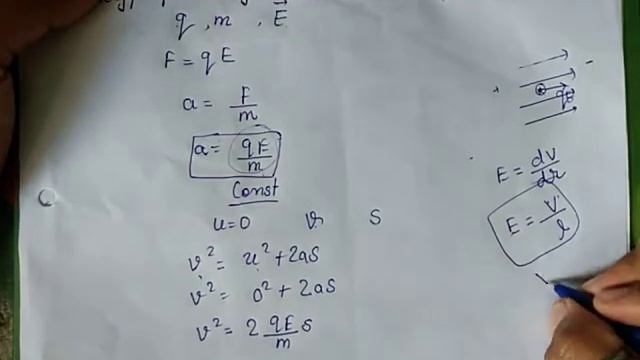 q , m , E⃗
F = qE
a = F/m
a = qE/m
Const
u=0 v S
v² = u² + 2aS
v² = 0² + 2aS
v² = 2 qE/m S
qE
E = dV/dr
E = V/l